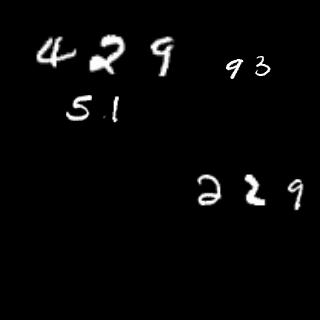 429
93
51
229